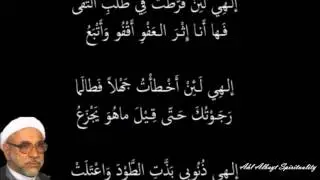 إلٰهِي لَئِنْ فَرَّطْتُ فِي طَلَبِ التُّقَى
فَـهَا أَنـا إِثْـرَ العَـفْوِ أَقْفُو وَأَتْبَعُ
إِلـٰهِي لَـئِنْ أَخْـطَـأْتُ جَـهْلاً فَـطَالَما
رَجَـوْتُكَ حَـتَّى قِيْـلَ مـاهُوَ يَجْزَعُ
إِلـٰهِي ذُنُوبِي بَذَّتِ الطَّوْدَ وَاعْتَلَتْ
Ahl Albayt Spirituality